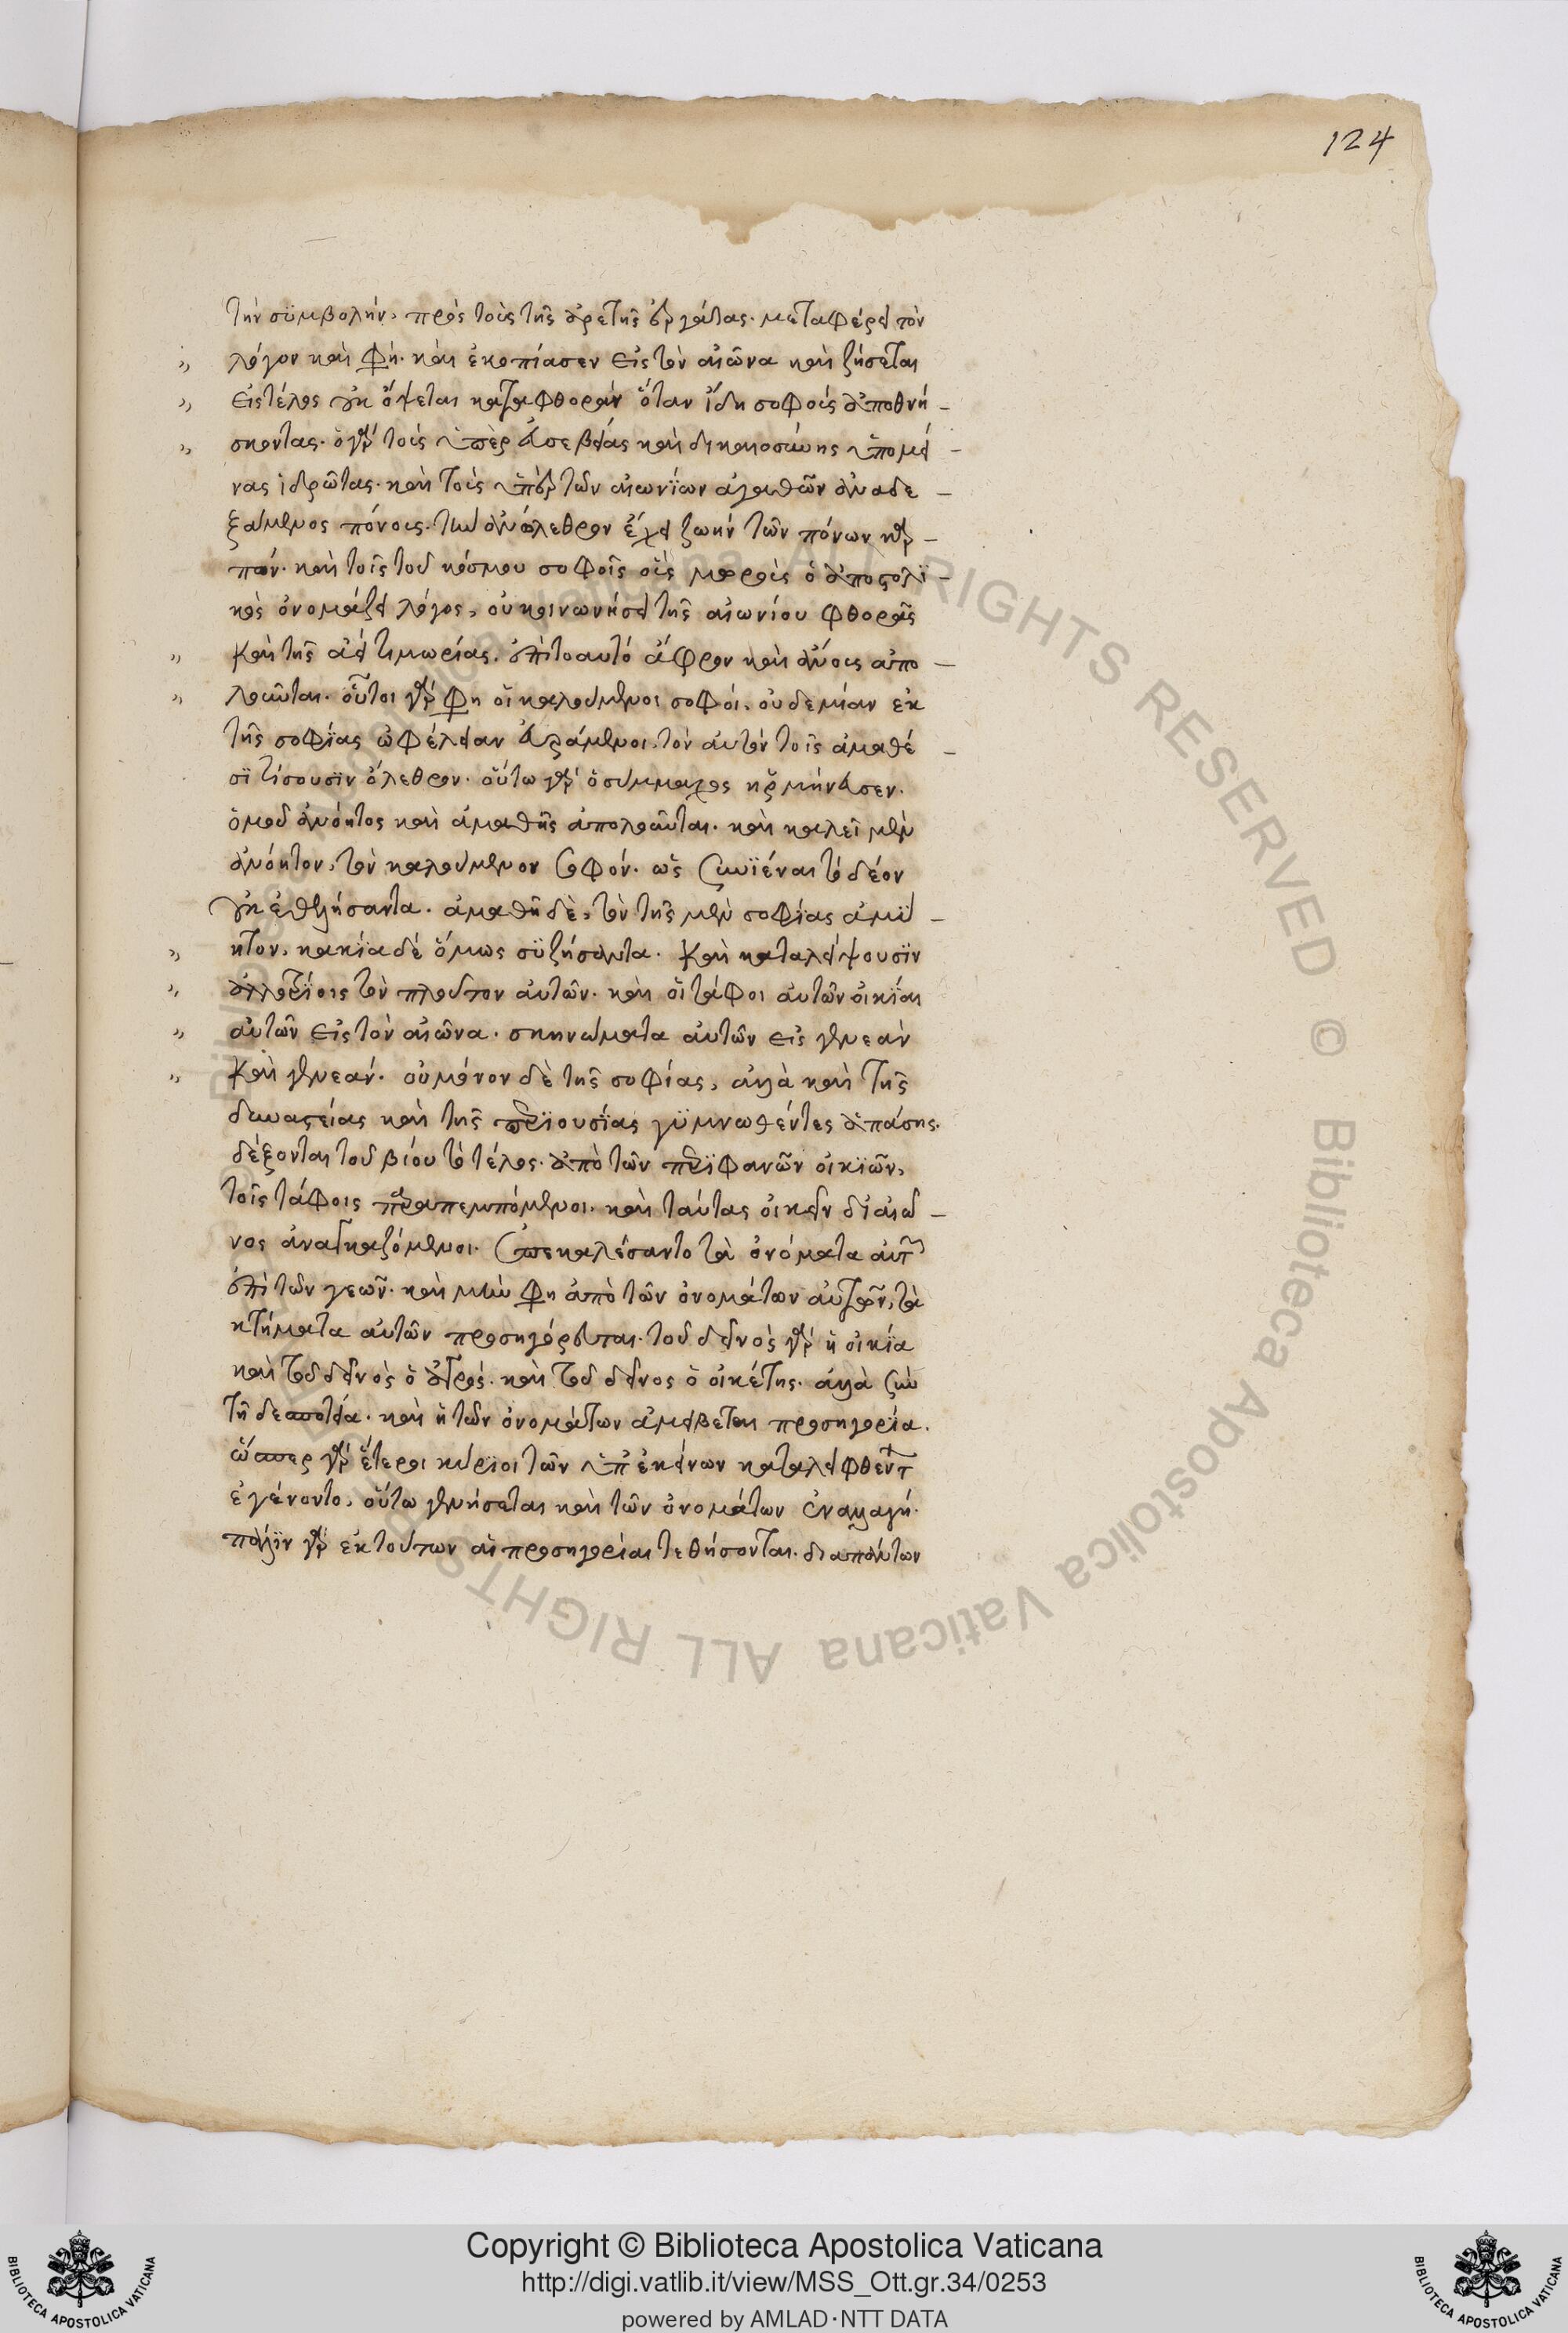 124
τὴν συμβολήν, πρὸς τοὺς τῆς ἀρετῆς ἐργάτας. μεταφέρει τὸν
λόγον καὶ φη. καὶ ἐκοπίασεν εἰς τὸν αἰῶνα καὶ ζήσεται
εἰς τέλος οὐκ ὄψεται καταφθορὰν ὅταν ἴδη σοφοὺς ἀποθνή –
σκοντας. ὁ γὰρ τοὺς ὑπὲρ εὐσεβείας καὶ δικαιοσύνης ὑπομεί –
νας ἱδρῶτας. καὶ τοὺς ὑπὲρ τῶν αἰωνίων ἀγαθῶν ἀναδε –
ξάμενος πόνους. τὴν ἀνόλεθρον ἕξει ζωὴν τῶν πόνων καρ –
πόν. καὶ τοῖς τοῦ κόσμου σοφοῖς οὓς μωροὺς ὁ ἀποστολι –
κὸς ὀνομάζει λόγος, οὐ κοινωνήσει τῆς αἰωνίου φθορᾶς
καὶ τῆς ἀεὶ τιμωρίας. ἐπιτοαυτό ἄφρων καὶ ἄνους ἀπο –
λοῦνται. οὗτοι γάρ φη οἱ καλούμενοι σοφοί, οὐδεμίαν ἐκ
τῆς σοφίας ὠφέλειαν εὑράμενοι, τὸν αὐτὸν τοῖς ἀμαθέ –
σι τίσουσιν ὄλεθρον. οὕτω γὰρ ὁ σύμμαχος ἡρμήνευσεν.
ὁμοῦ ἀνόητος καὶ ἀμαθὴς ἀπολοῦνται. καὶ καλεῖ μὲν
ἀνόητον, τὸν καλούμενον σοφόν. ὡς συνϊέναι τὸ δέον
οὐκ ἐθελήσαντα. ἀμαθῆ δὲ, τὸν τῆς μὲν σοφίας ἀμύ –
ητον, κακία δὲ ὅμως συζήσαντα. καὶ καταλείψουσιν
ἀλλοτρίοις τὸν πλοῦτον αὐτῶν. καὶ οἱ τάφοι αὐτῶν οἰκίαι
αὐτῶν εἰς τὸν αἰῶνα. σκηνώματα αὐτῶν εἰς γενεὰν
καὶ γενεάν. οὐ μόνον δὲ τῆς σοφίας, ἀλλὰ καὶ τῆς
δυναστείας καὶ τῆς περιουσίας γυμνωθέντες ἁπάσης.
δέξονται τοῦ βίου τὸ τέλος. ἀπὸ τῶν περιφανῶν οἰκιῶν,
τοῖς τάφοις παραπεμπόμενοι. καὶ ταύτας οἰκεῖν δι αἰῶ –
νος ἀναγκαζόμενοι. ἐπεκαλέσαντο τὰ ὀνόματα αὐτῶν
ἐπὶ τῶν γεῶν. καὶ μὴν φη ἀπὸ τῶν ὀνομάτων αὐτῶν, τὰ
κτήματα αὐτῶν προσηγόρευται. τοῦ δεῖνὸς γὰρ ἡ οἰκία
καὶ τοῦ δεινὸς ὁ ἀγρός. καὶ τοῦ δεῖνος ὁ οἰκέτης. ἀλλὰ σὺν
τῆ δεσποτεία. καὶ ἡ τῶν ὀνομάτων ἀμείβεται προσηγορία.
ὥσπερ γὰρ ἕτεροι κύριοι τῶν ὑπ ἐκείνων καταλειφθέντων
ἐγένοντο, οὕτω γενήσεται καὶ τῶν ὀνομάτων ἐναλλαγή.
πάλιν γὰρ ἐκ τούτων αἱ προσηγορίαι τεθήσονται. διαπάντων
Copyright © Biblioteca Apostolica Vaticana
http://digi.vatlib.it/view/MSS_Ott.gr.34/0253
powered by AMLAD·NTT DATA